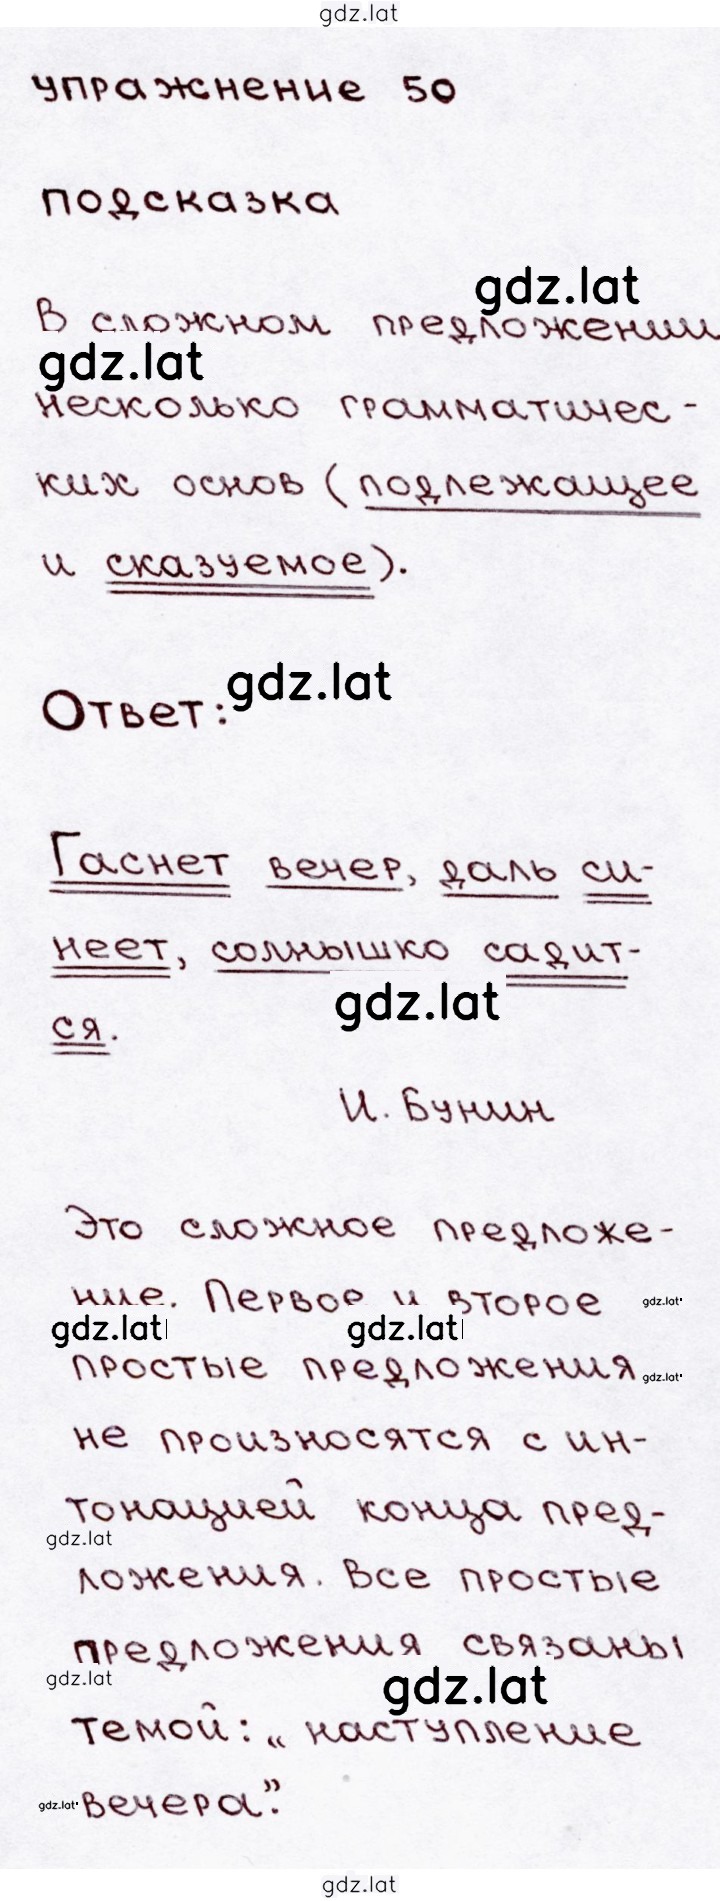 gdz.lat
упражнение 50
подсказка
gdz.lat
В сложном предложении
gdz.lat
несколько грамматичес-
ких основ (подлежащее
и сказуемое).
gdz.lat
Ответ:
Гаснет вечер, даль си-
неет, солнышко садит-
gdz.lat
ся.
И. Бунин
Это сложное предложе-
ние. Первое и второе gdz.lat
gdz.lat gdz.lat
простые предложения gdz.lat
не произносятся с ин-
тонацией конца пред-
gdz.lat
ложения. Все простые
предложения связаны
gdz.lat gdz.lat
темой: „наступление
gdz.lat вечера”.
gdz.lat